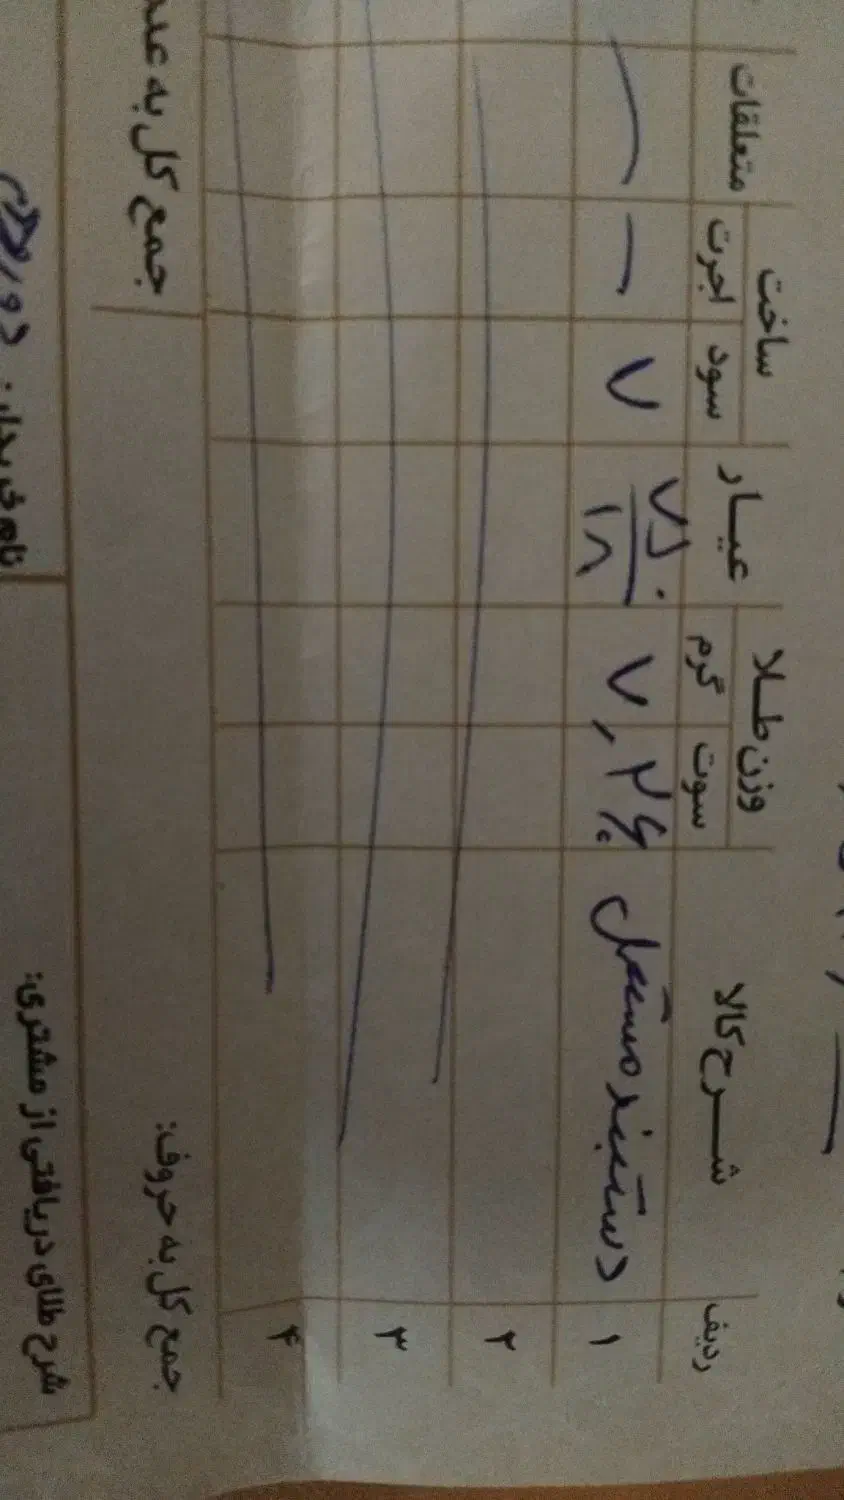 ردیف شرح کالا وزن طلا عیار ساخت متعلقات
گرم سوت سود اجرت
۱ دستبند مستعمل ۷٫۲۶۰ ۷۵۰ ۷ — —
۱۸
۲
۳
۴
جمع کل به حروف: جمع کل به
شرح طلای دریافتی از مشتری: